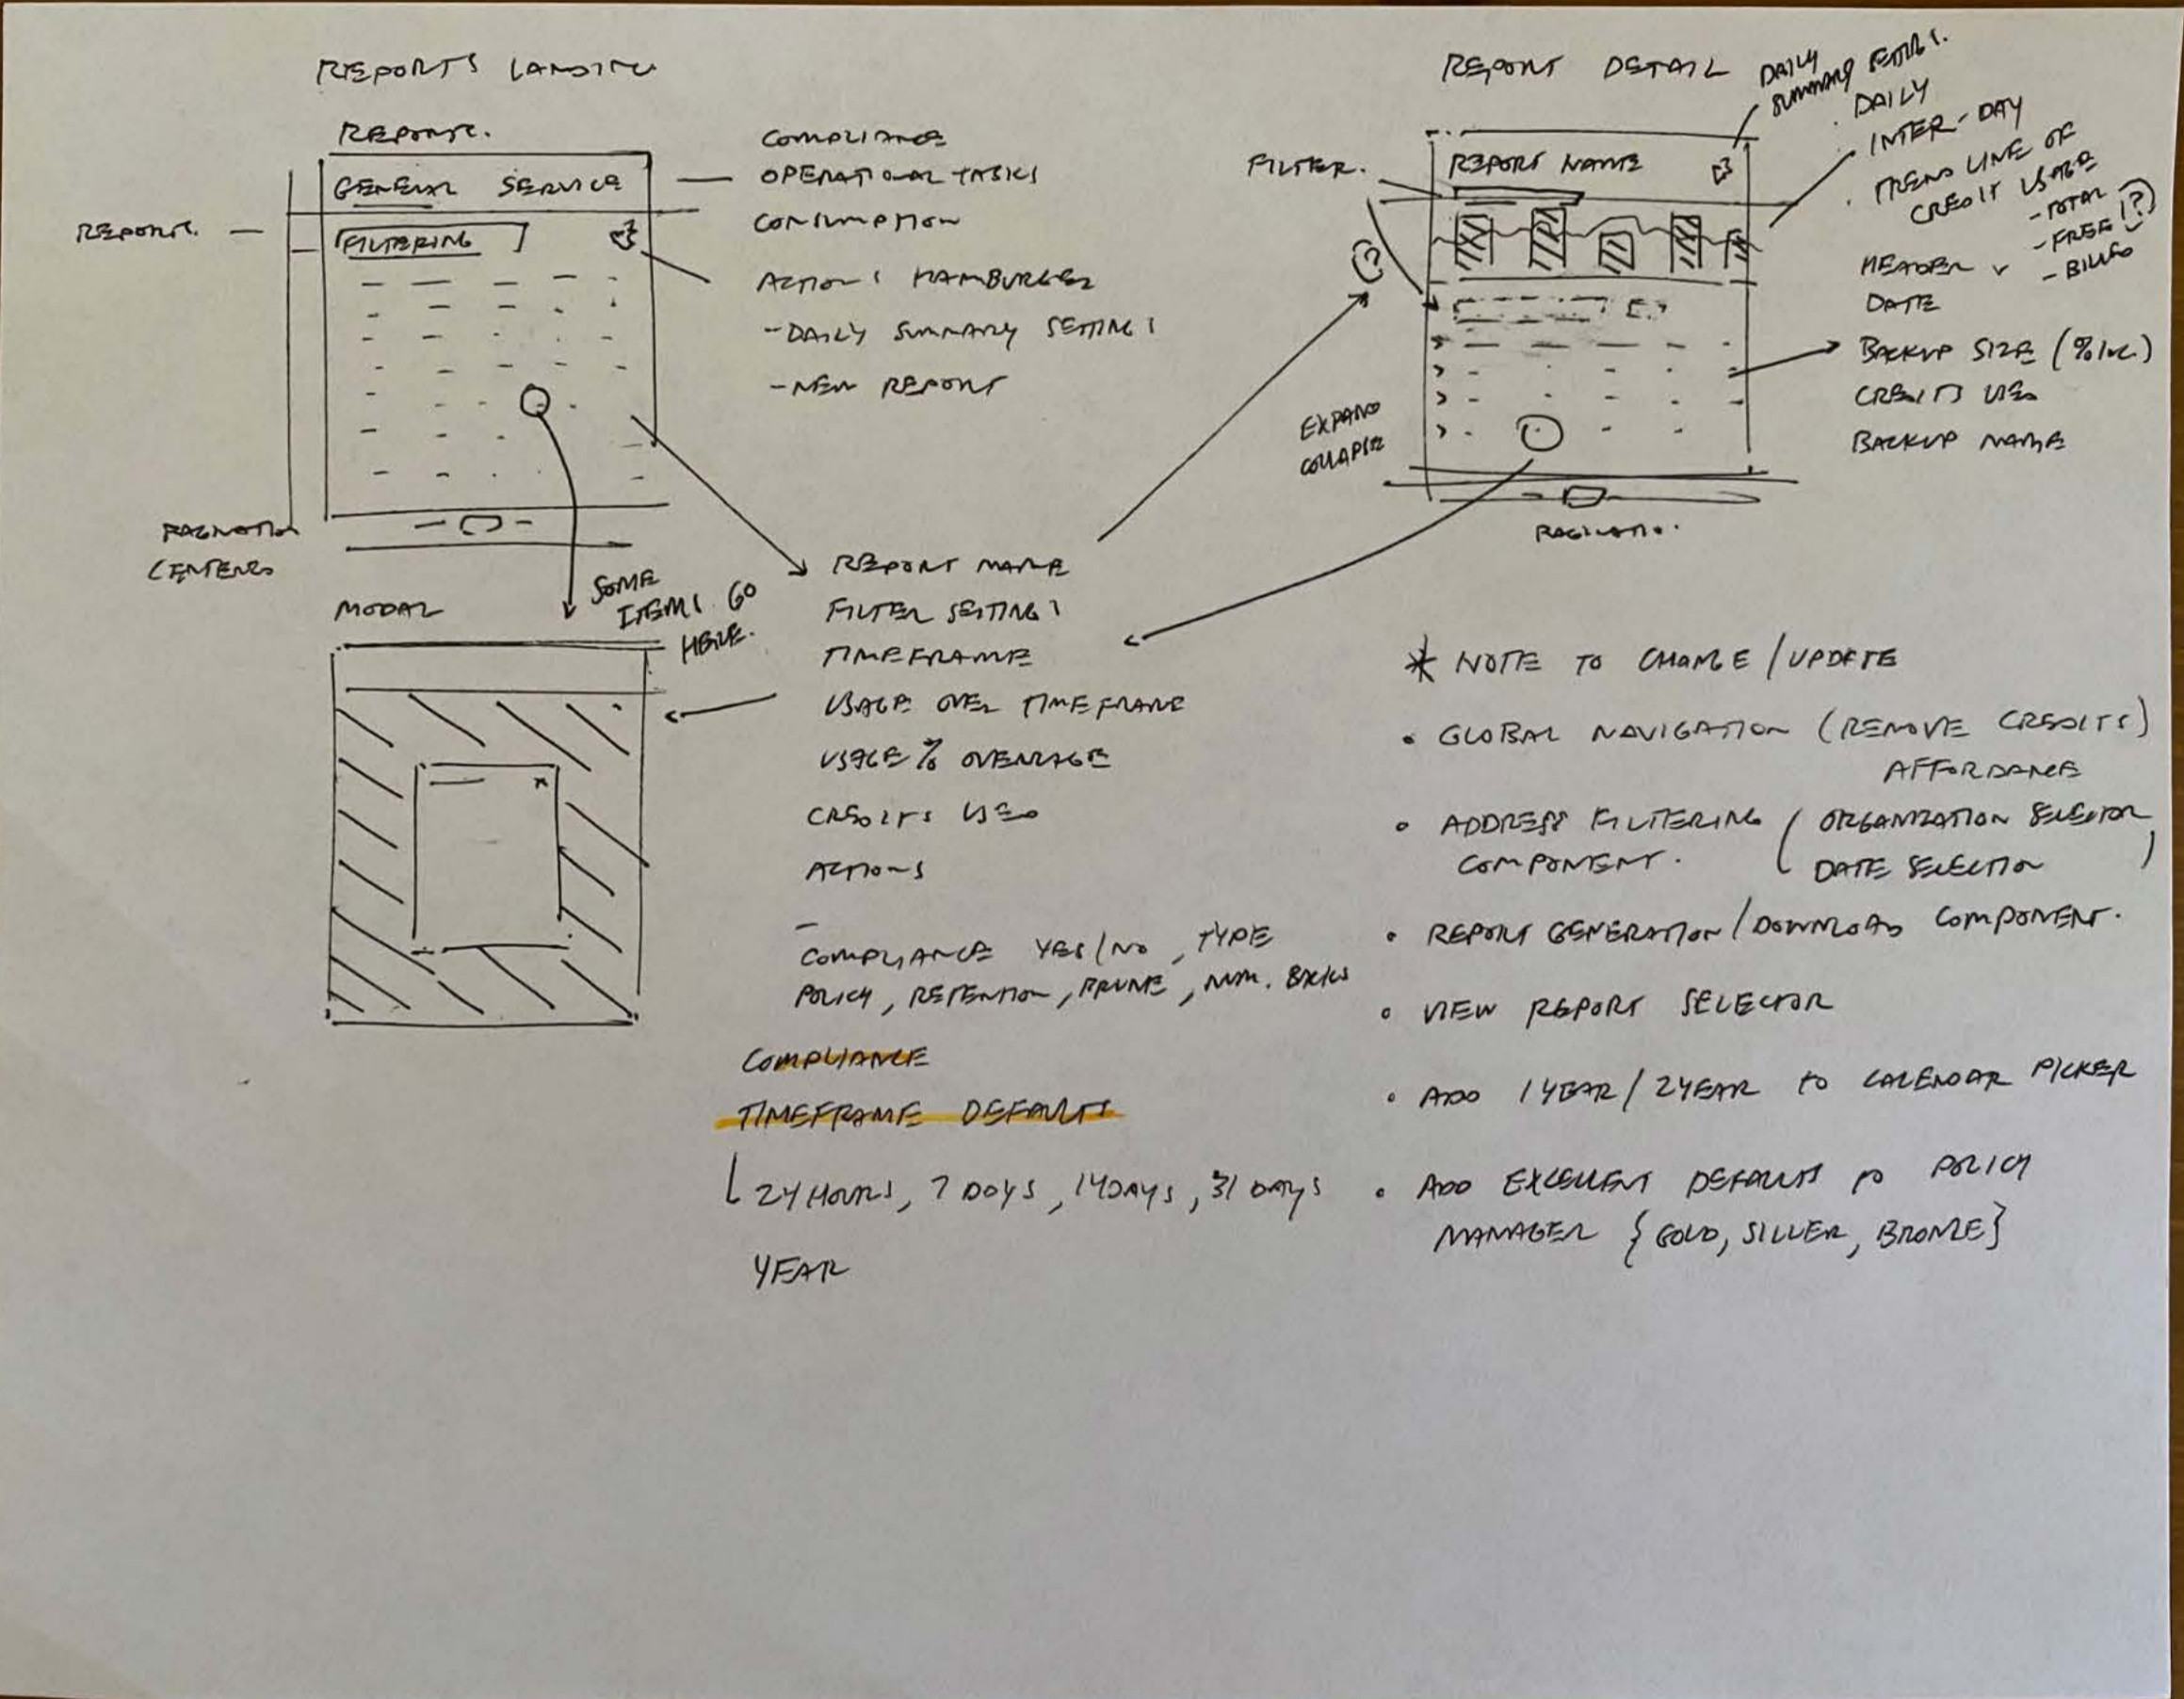 REPORTS LANDING
REPORTS.
GENERAL SERVICE
FILTERING
REPORTS. —
PAGINATION
CENTERED
COMPLIANCE
OPERATIONAL TASKS
CONSUMPTION
ACTIONS HAMBURGER
- DAILY SUMMARY SETTINGS
- NEW REPORT
MODAL
SOME
ITEMS GO
HERE.
REPORT NAME
FILTER SETTINGS
TIMEFRAME
USAGE OVER TIMEFRAME
USAGE % OVERAGE
CREDITS USED
ACTIONS
—
COMPLIANCE YES/NO, TYPE
POLICY, RETENTION, PRUNE, NUM. BACKUPS
COMPLIANCE
TIMEFRAME DEFAULTS
24 HOURS, 7 DAYS, 14 DAYS, 31 DAYS
YEAR
REPORT DETAIL
DAILY
SUMMARY SETTINGS.
FILTER.
REPORT NAME
(?)
EXPAND
COLLAPSE
PAGINATION.
· DAILY
· INTER-DAY
· TREND LINE OF
CREDIT USAGE
- TOTAL
- FREE (?)
- BILLED
HEADER
DATE
BACKUP SIZE (%/
CREDITS USED
BACKUP NAME
* NOTE TO CHANGE/UPDATE
• GLOBAL NAVIGATION (REMOVE CREDITS)
AFFORDANCE
• ADDRESS FILTERING (ORGANIZATION SELECTOR,
COMPONENT. DATE SELECTION)
• REPORT GENERATION/DOWNLOAD COMPONENT.
• VIEW REPORT SELECTOR
• ADD 1 YEAR/2 YEAR TO CALENDAR PICKER
• ADD EXCELLENT DEFAULTS TO POLICY
MANAGER {GOLD, SILVER, BRONZE}